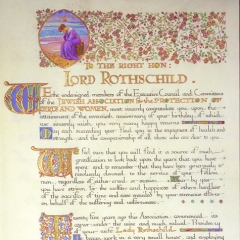 TO THE RIGHT HON:
LORD ROTHSCHILD.
WE the undersigned, members of the Executive Council and Committees
of the JEWISH ASSOCIATION for the PROTECTION OF
GIRLS AND WOMEN, most sincerely congratulate you upon the
attainment of the seventieth anniversary of your birthday, of which
we wish you very many happy returns
each succeeding year find you in the enjoyment of health and
strength, and the companionship of all those who are dear to
We feel sure that you will find it a source of much
gratification to look back upon the years that you have
and to remember that they have been generously &
devoted to the service of your fellow
regardless of either creed or
you have striven for the welfare and happiness of others heedless
of the sacrifice of time and
on behalf of the suffering and unfortunate.
Twenty five years ago this Association commenced its
of your wife Lady Rothschild
began work in a very small house, and employing